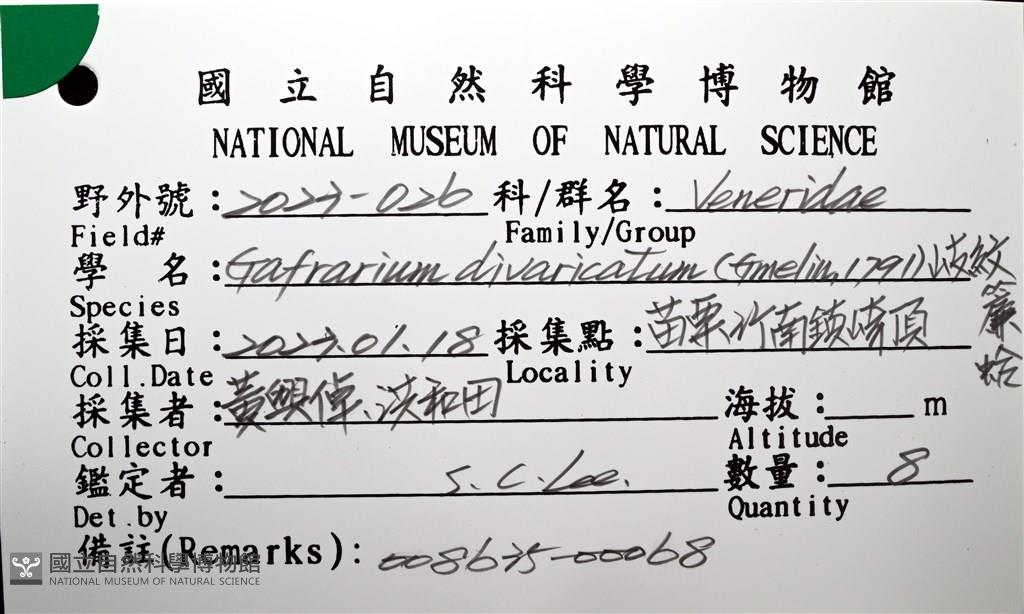 國立自然科學博物館
NATIONAL MUSEUM OF NATURAL SCIENCE
野外號：2023-026 科/群名：Veneridae
Field# Family/Group
學名：Gafrarium divaricatum (Gmelin, 1791) 歧紋簾蛤
Species
採集日：2023.01.18 採集點：苗栗竹南鎮崎頂
Coll.Date Locality
採集者：黃興倬、洪和田 海拔：m
Collector Altitude
鑑定者：S. C. Lee. 數量：8
Det.by Quantity
備註(Remarks)：008635-00068
國立自然科學博物館
NATIONAL MUSEUM OF NATURAL SCIENCE